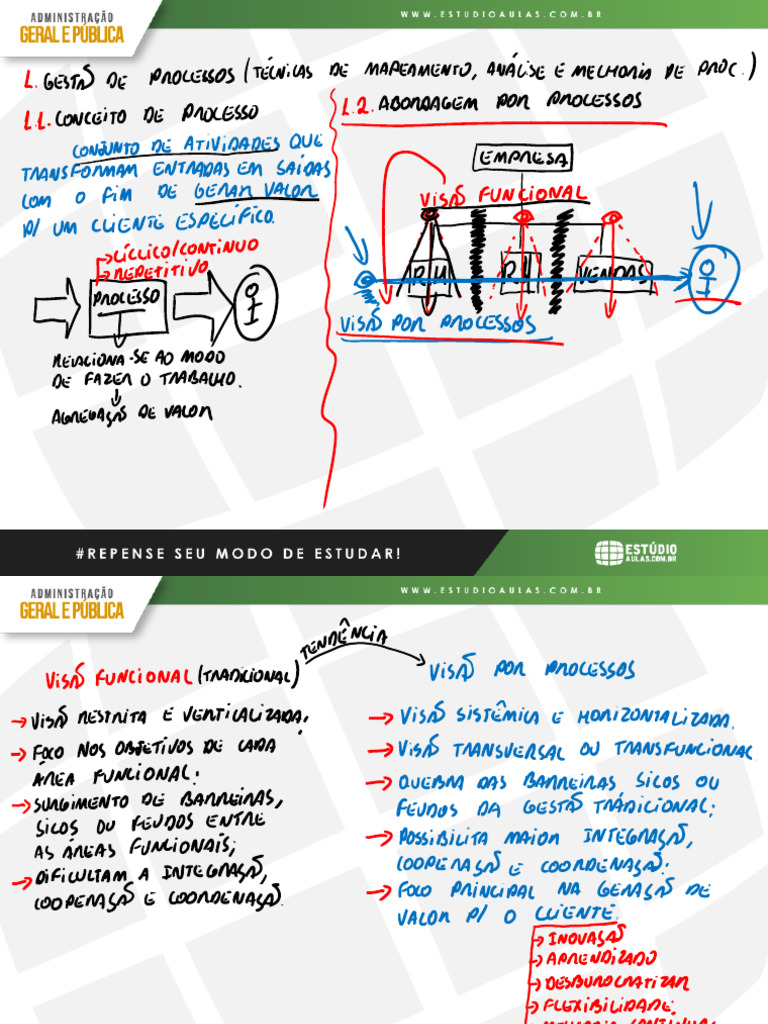 ADMINISTRAÇÃO
GERAL E PÚBLICA
WWW.ESTUDIOAULAS.COM.BR
1. GESTÃO DE PROCESSOS (TÉCNICAS DE MAPEAMENTO, ANÁLISE E MELHORIA DE PROC.)
1.1. CONCEITO DE PROCESSO
CONJUNTO DE ATIVIDADES QUE
TRANSFORMAM ENTRADAS EM SAÍDAS
COM O FIM DE GERAR VALOR
P/ UM CLIENTE ESPECÍFICO.
CÍCLICO/CONTÍNUO
REPETITIVO
PROCESSO
RELACIONA-SE AO MODO
DE FAZER O TRABALHO.
AGREGAÇÃO DE VALOR
1.2. ABORDAGEM POR PROCESSOS
EMPRESA
VISÃO FUNCIONAL
RH
VENDAS
VISÃO POR PROCESSOS
#REPENSE SEU MODO DE ESTUDAR!
ESTÚDIO
AULAS.COM.BR
ADMINISTRAÇÃO
GERAL E PÚBLICA
WWW.ESTUDIOAULAS.COM.BR
TENDÊNCIA
VISÃO FUNCIONAL (TRADICIONAL)
VISÃO RESTRITA E VERTICALIZADA;
FOCO NOS OBJETIVOS DE CADA
ÁREA FUNCIONAL;
SURGIMENTO DE BARREIRAS,
SILOS OU FEUDOS ENTRE
AS ÁREAS FUNCIONAIS;
DIFICULTAM A INTEGRAÇÃO,
COOPERAÇÃO E COORDENAÇÃO.
VISÃO POR PROCESSOS
VISÃO SISTÊMICA E HORIZONTALIZADA.
VISÃO TRANSVERSAL OU TRANSFUNCIONAL
QUEBRA DAS BARREIRAS SILOS OU
FEUDOS DA GESTÃO TRADICIONAL;
POSSIBILITA MAIOR INTEGRAÇÃO,
COOPERAÇÃO E COORDENAÇÃO;
FOCO PRINCIPAL NA GERAÇÃO DE
VALOR P/ O CLIENTE.
INOVAÇÃO
APRENDIZADO
DESBUROCRATIZAR
FLEXIBILIDADE;